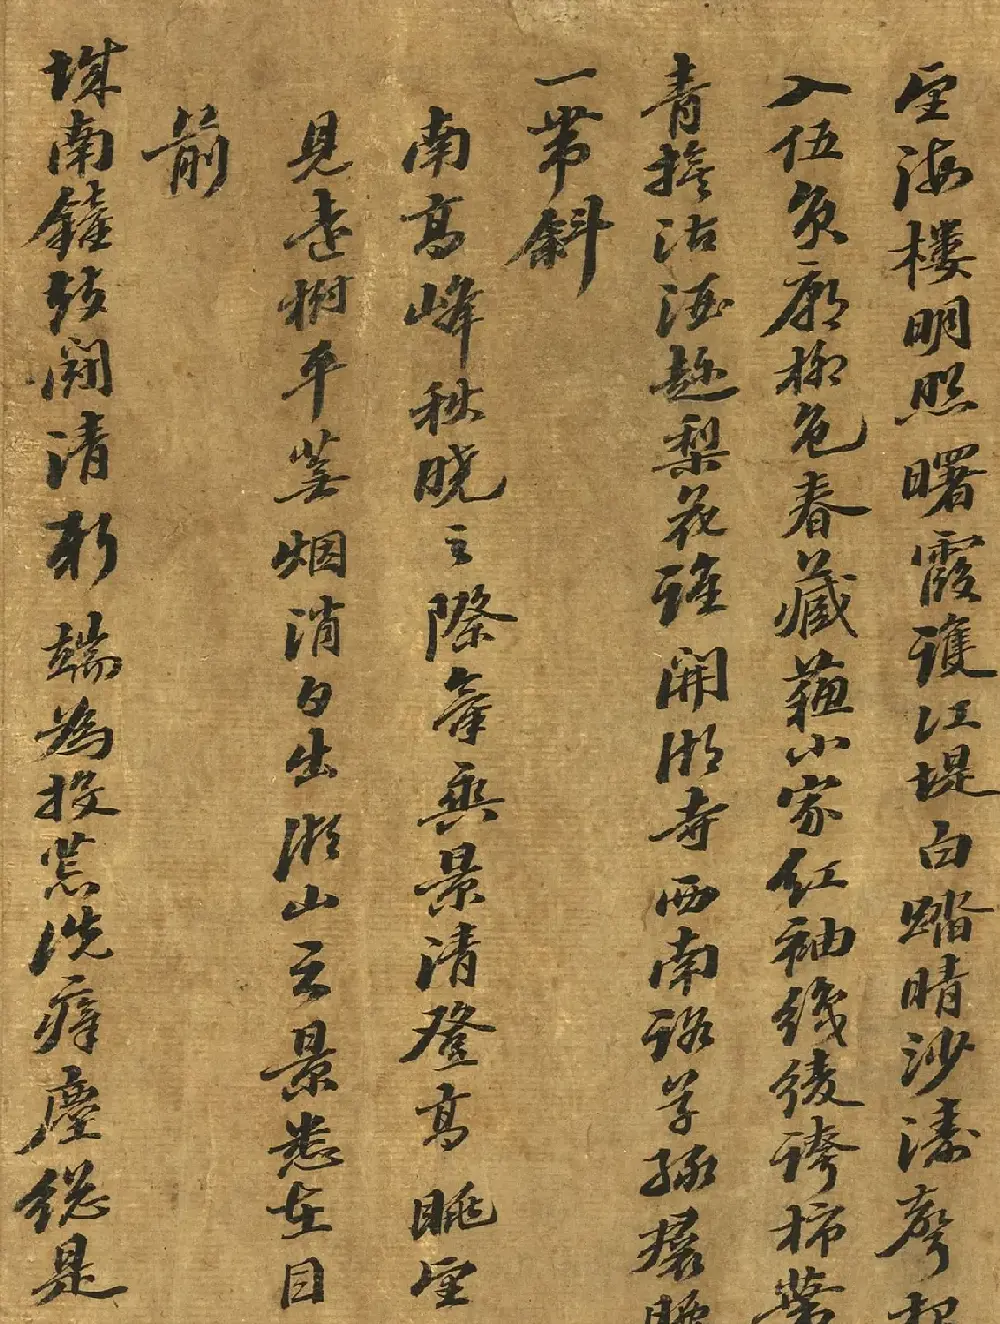 望海樓明照曙霞護江堤白踏晴沙濤聲
入伍員廟柳色春藏蘇小家紅袖織綾誇柿
青沽酒趁梨花誰開湖寺西南路草綠裙腰
一帶斜
南高峰秋曉之際乘景清登高眺望
見遠樹平蕪烟消日出湖山之景悉在目
前
城南鐘鼓鬥清新端為投荒洗瘴塵總是